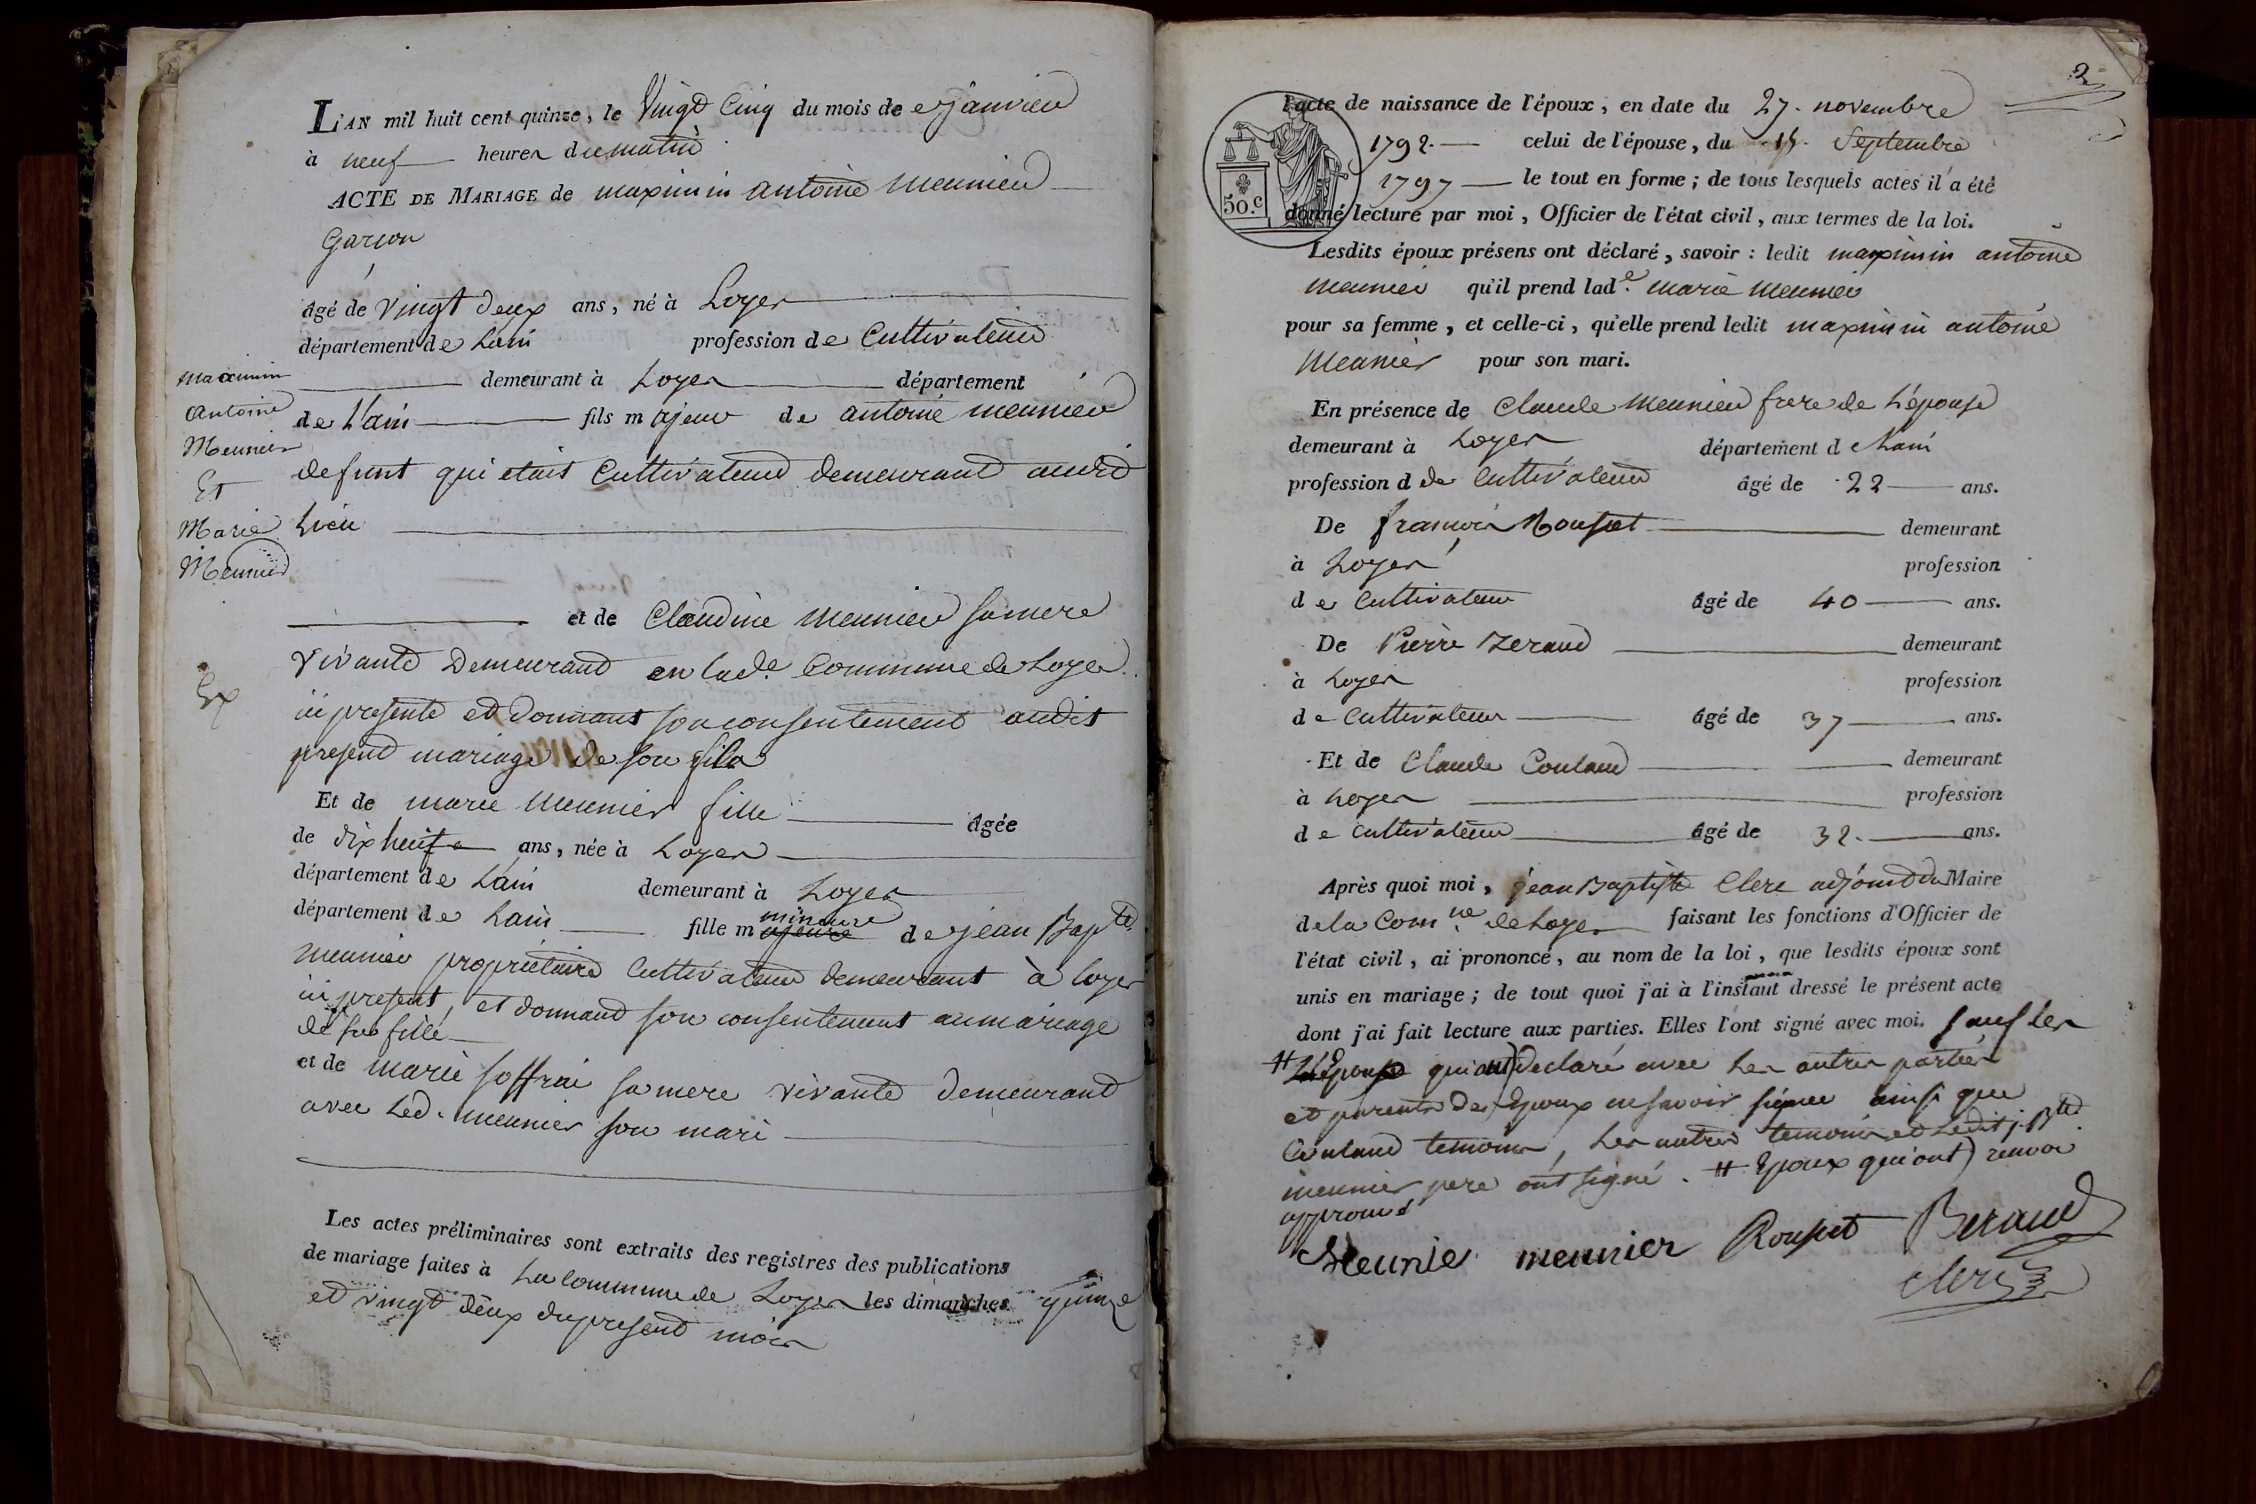 L'AN mil huit cent quinze, le Vingt Cinq du mois de janvier
à neuf heures du matin
ACTE DE MARIAGE de maximin antoine meunier
Garçon
âgé de vingt deux ans, né à Loyes
département de Lain profession de Cultivateur
demeurant à Loyes département
de L'ain fils majeur de antoine meunier
defunt qui etait Cultivateur demeurant audit
Lieu
et de Claudine meunier sa mere
vivante Demeurant en lad.e Commune de Loyes
ici presente et donnant son consentement audit
present mariage de son fils
Et de marie meunier fille âgée
de dix huit ans, née à Loyes
département de Lain demeurant à Loyes
département de Lain fille mineure de jean Bapte
meunier propriétaire Cultivateur demeurant à loyes
ici present, et donnant son consentement au mariage
de sa fille
et de marie soffrai sa mere vivante demeurant
avec led. meunier son mari
Les actes préliminaires sont extraits des registres des publications
de mariage faites à La Commune de Loyes les dimanches quinze
et vingt deux du present mois
Maximin
Antoine
Meunier
Et
Marie
Meunier
2
50.c
l'acte de naissance de l'époux, en date du 27. novembre
1792. celui de l'épouse, du 15. Septembre
1797 le tout en forme; de tous lesquels actes il a été
donné lecture par moi, Officier de l'état civil, aux termes de la loi.
Lesdits époux présens ont déclaré, savoir: ledit maximin antoine
meunier qu'il prend lad.e marie meunier
pour sa femme, et celle-ci, qu'elle prend ledit maximin antoine
Meunier pour son mari.
En présence de Claude Meunier frere de L'épouse
demeurant à Loyes département de Lain
profession d de Cultivateur âgé de 22 ans.
De françois Rousset demeurant
à Loyes profession
de Cultivateur âgé de 40 ans.
De Pierre Beraud demeurant
à Loyes profession
de Cultivateur âgé de 37 ans.
Et de Claude Coulaud demeurant
à Loyes profession
de Cultivateur âgé de 32. ans.
Après quoi moi, jean Baptiste Clerc adjoint du Maire
de la Com.ne de Loyes faisant les fonctions d'Officier de
l'état civil, ai prononcé, au nom de la loi, que lesdits époux sont
unis en mariage; de tout quoi j'ai à l'instant dressé le présent acte
dont j'ai fait lecture aux parties. Elles l'ont signé avec moi. sauf les
# L'Epouse qui ont) declaré avec les autres parties
et parents des Epoux ne savoir signer ainsi que
Coulaud temoin, les autres temoins et Ledit j. Bte
meunier pere ont signé. # Epoux qui ont) renvoi
approuvé
Meunie meunier Rousset Beraud
Clerc